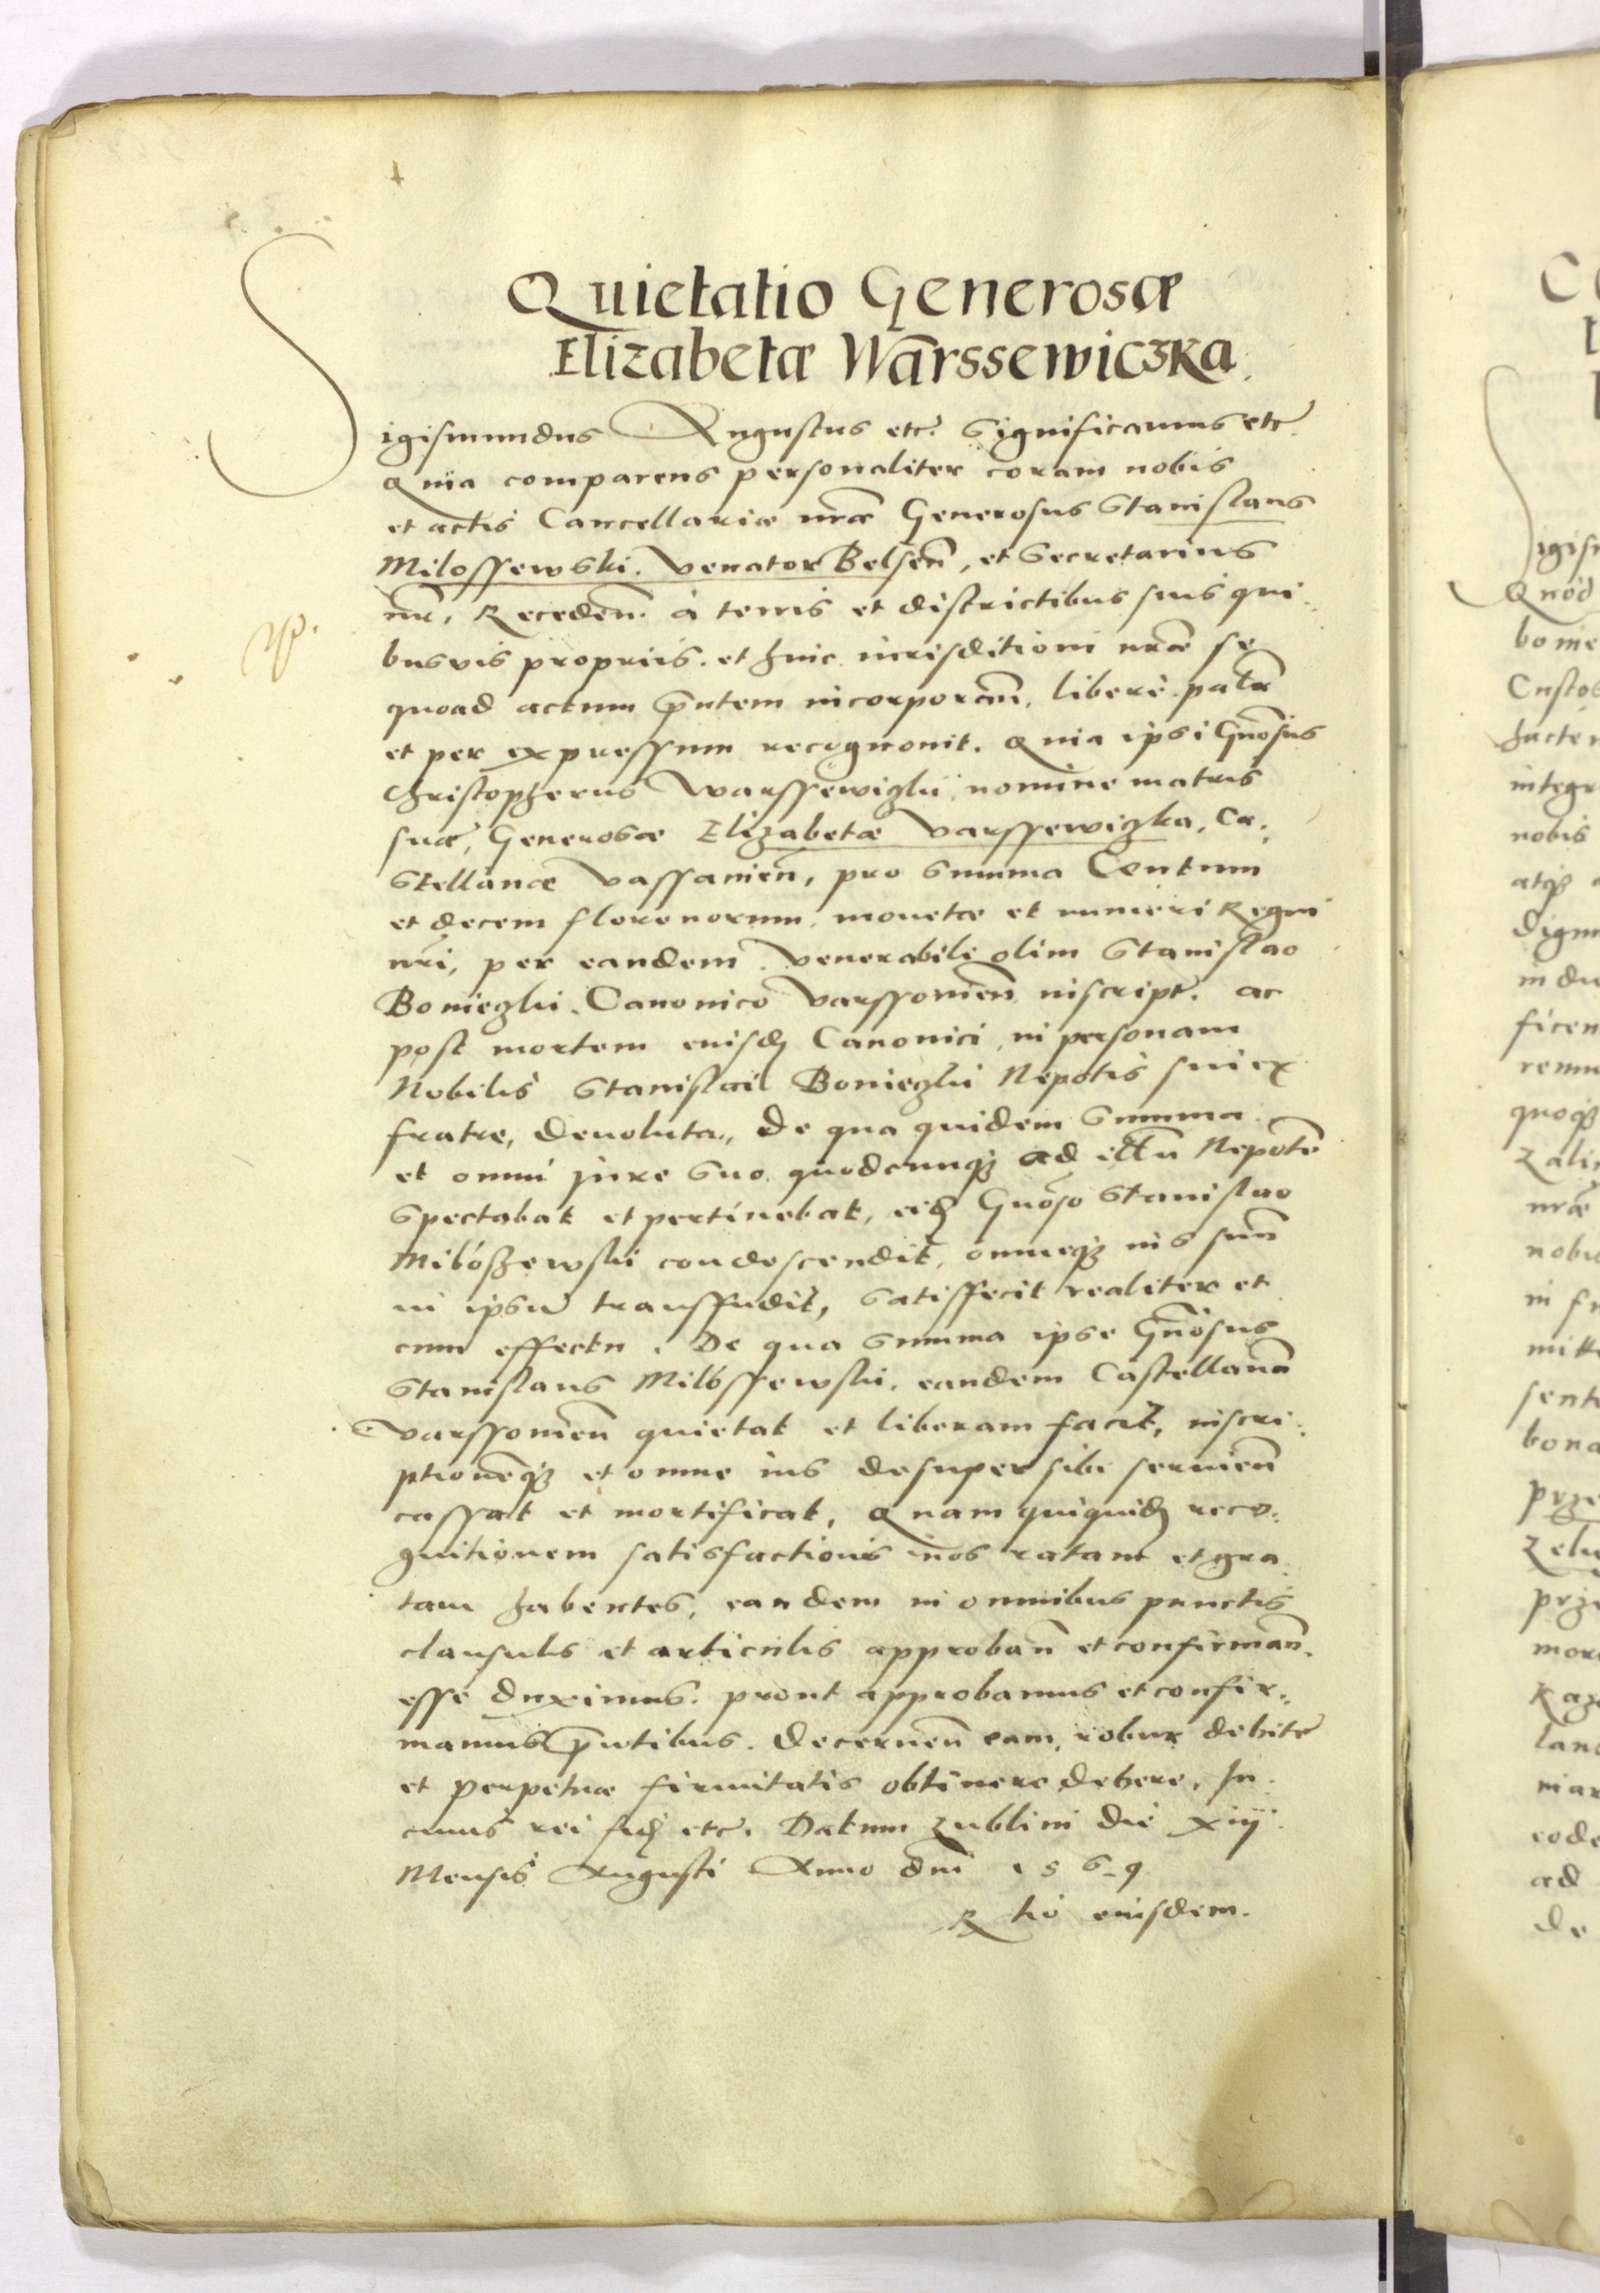 Quietatio Generosæ
Elizabetæ Warssewiczka.
Sigismundus Augustus etc. Significamus etc.
Quia comparens personaliter coram nobis
et actis Cancellariæ nrae Generosus Stanislaus
Milossewski. Venator Belsen̄, et Secretarius
nr̄, Receden̄. à terris et districtibus suis qui
busvis propriis. et huic iurisditioni nrae se
quoad actum pn̄tem incorporan̄, liberè palā
et per expressum recognovit. Quia ipsi Gnōsus
Christopherus Warssewiczki nomine matris
suæ, Generosæ Elizabetæ Varssewiczka, Ca:
stellanæ Varssavien̄, pro summa Centum
et decem florenorum, monetæ et numeri Regni
nr̄i, per eandem venerabili olim Stanislao
Bonieczki. Canonico Varssovien̄ inscript. ac
post mortem eiusd̄ Canonici, in personam
Nobilis Stanislai Bonieczki Nepotis sui ex
fratre, devoluta, de qua quidem Summa
et omni jure suo quodcunq̨ ad illū Nepotē
spectabat et pertinebat, eid̄ Gnōso Stanislao
Milószewski condescendit, omneq̨ ius suū
in ipsū transfudit, satisfecit realiter et
cum effectu. De qua summa ipse Gnōsus
Stanislaus Milóssewski, eandem Castellanā
Varssovien̄ quietat et liberam facit, inscri:
ptioneq̨ et omne ius desuper sibi servien̄
cassat et mortificat, Quam quiquid̄ reco:
gnitionem satisfactionis nos ratam et gra
tam habentes, eandem in omnibus punctis
clausulis et articulis approban̄ et confirman̄.
esse duximus. prout approbamus et confir:
mamus pn̄tibus. Decernen̄ eam, robur debitæ
et perpetuæ firmitatis obtinere debere. In
cuius rei fid̄ etc. Datum Lublini die xiij
Mensis Augusti Anno dn̄i 1569
R tio eiusdem.